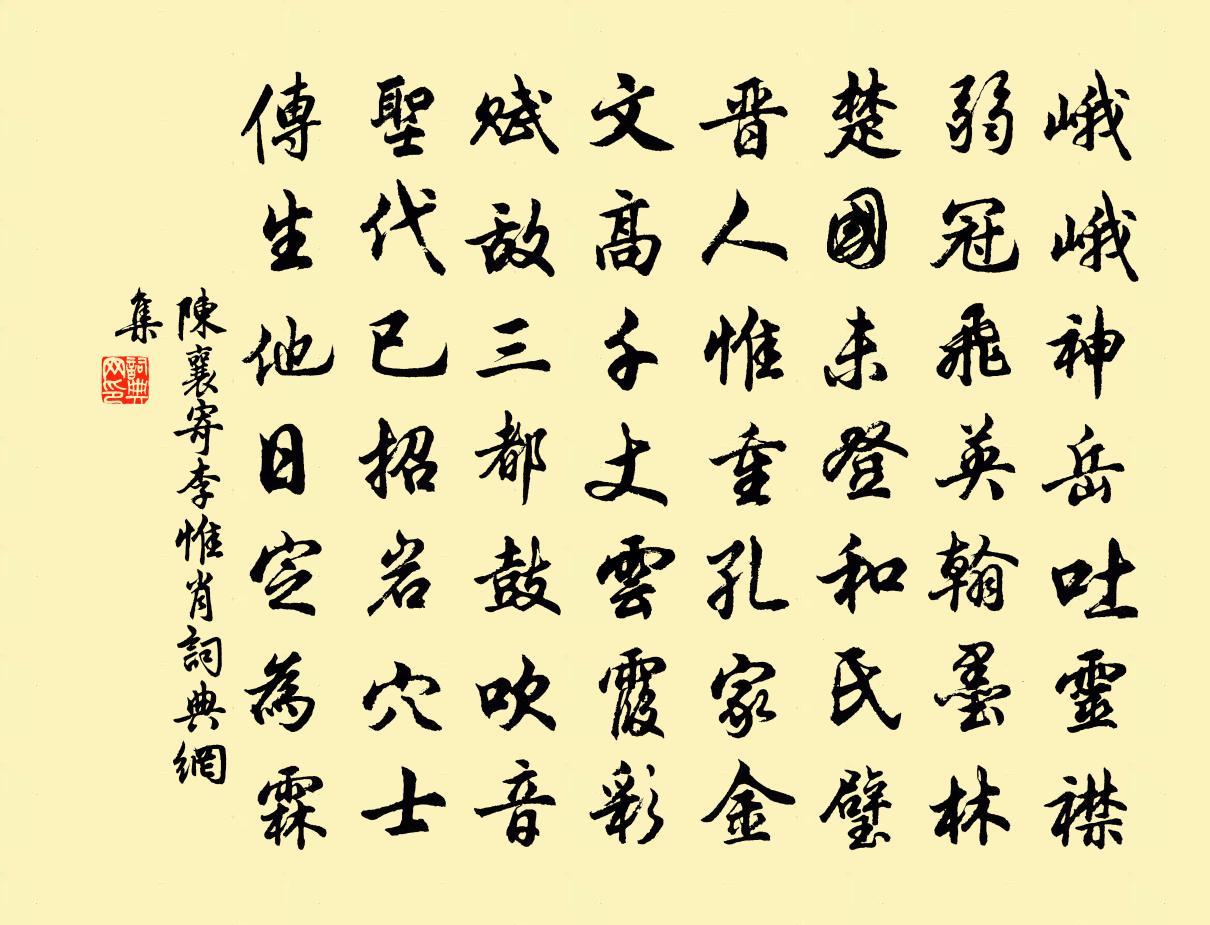 峨峨神岳吐靈襟
弱冠飛英翰墨林
楚國未登和氏璧
晋人惟重孔家金
文高千丈雲霞彩
賦敌三都鼓吹音
聖代已招岩穴士
傅生他日定為霖
陳襄寄李惟肖詞典網
集
詞典网印